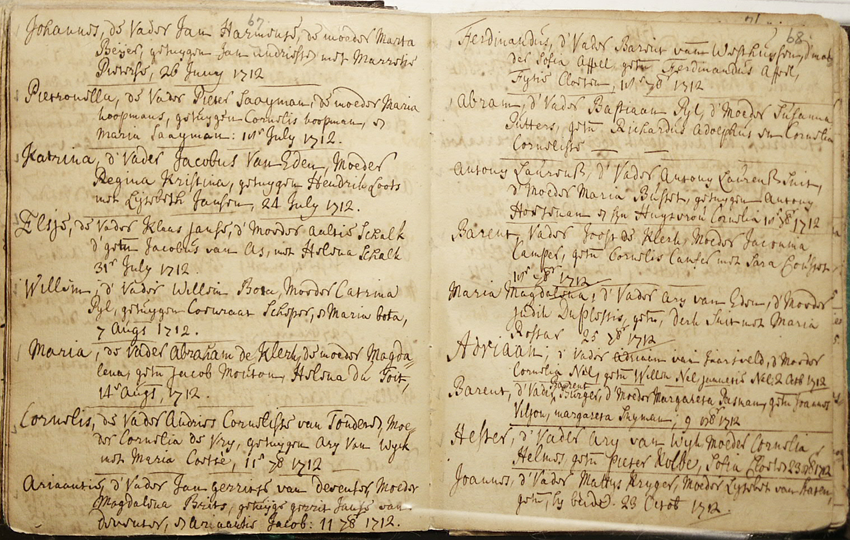 67
Johannes, de Vader Jan Harmense, de moeder Marta
Beijer, getuygen Jan andriesse, met
Pieterse, 26 Juny 1712
Pieternella, de Vader Pieter Saayman, de moeder Maria
koopmans, getuygen Cornelis koopman, en
Maria Saayman: 10e July 1712.
Katrina, d' Vader Jacobus Van Eden, Moeder
Regina Kristina, getuygen Hendrik Loots
met Lysebeth Jansen, 24 July 1712.
Elsje, de Vader Klaas Janse, d' Moeder Aeltie Schalk
d' getn Jacobus van As, met Helena Schalk
31e July 1712.
Willem, d' Vader Willem Bota, Moeder Catrina
Pyl, getuygen Coenraat Scheper, en Maria bota,
7 Augs 1712.
Maria, de Vader Abraham de Klerk, de moeder Magda-
lena, getn Jacob Mouton, Helena du Toit,
14e Augs, 1712.
Cornelis, de Vader Andries Cornelisse van Tonderen, Moe-
der Cornelia de Vry, getuygen Ary Van Wyk
met Maria Coetse, 11e 7b 1712
Ariaantie, d' Vader Jan gerritse van deventer, Moeder
Magdalena Brits, getuyge gerrit Janse van
deventer, en Ariaantie Jacob: 11 7b 1712.
68
Ferdinandus, d' Vader Barent vant Westhuysen, d' moe
der Sofia Appel, getn Ferdinandus Appel,
Fytie Cloeten, 7b 1712
Abram, d' Vader Bastiaan Pyl, d' Moeder Susanna
Putters, getn Richardus Adolphus en Cornelia
Cornelisse
Antony Laurens, d' Vader Antony Laurens Smit,
d' Moeder Maria Busset, getuygen Antony
en syn Huysvrou Cornelia 7b 1712
Barent, Vader Joost de Klerk, Moeder Jacomina
Camper, getn Cornelis Camper met Sara
7b 1712
Maria Magdalena, d' Vader Ary van Eden, d' Moeder
judik Duplessis, getn, Derk Smit met Maria
Rostar 25 7b 1712
Adriaan, d' Vader Adriaan van Jaarsveld, d' Moeder
Cornelia Nel, getn Willem Nel, Jannetie Nel, 2 Octb 1712
Barent, d' Vader Barent Burger, d' Moeder Margareta Pasman, getn Joannes
Viljon, margareta Snyman, 9 1712
Hester, d' Vader Ary van Wyk Moeder Cornelia
Helmes getn Pieter Kolbe, Sofia 23 1712
Joannes, d' Vader Mattys Kryger, Moeder Lysebet van
getn, by beide. 23 Octob 1712.